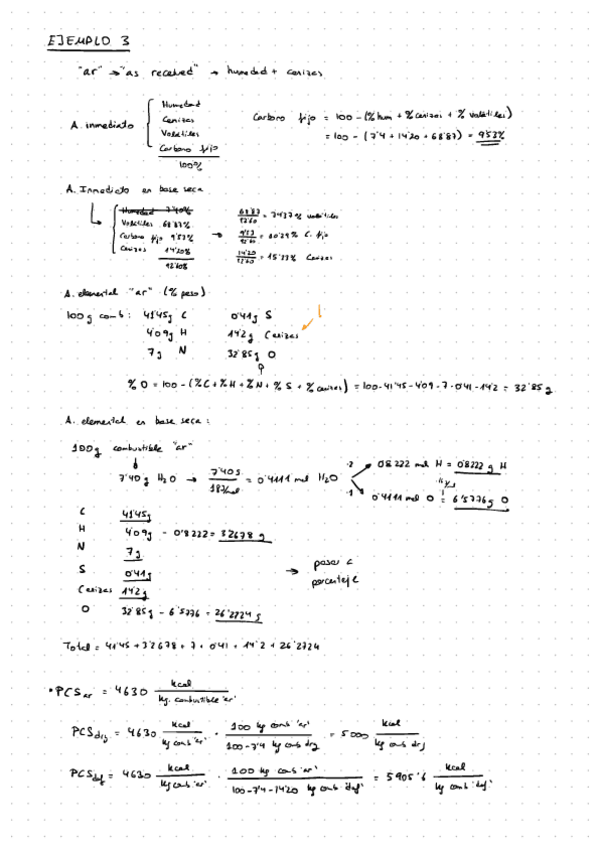 EJEMPLO 3
"ar" → "as received" → humedad + cenizas
A. inmediato
Humedad
Cenizas
Volátiles
Carbono fijo
100%
Carbono fijo = 100 - (% hum + % cenizas + % volátiles)
= 100 - (7'4 + 14'20 + 68'87) = 9'53%
A. Inmediato en base seca
Humedad 7'40%
Volátiles 68'87%
Carbono fijo 9'53%
Cenizas 14'20%
92'60%
68'87/92'60 = 74'37% volátiles
9'53/92'60 = 10'29% C. fijo
14'20/92'60 = 15'33% Cenizas
A. elemental "ar" (% peso)
100 g comb: 41'45 g C 0'41 g S
4'09 g H 14'2 g Cenizas
7 g N 32'85 g O
% O = 100 - (% C + % H + % N + % S + % cenizas) = 100 - 41'45 - 4'09 - 7 - 0'41 - 14'2 = 32'85 g
A. elemental en base seca:
100 g combustible "ar"
7'40 g H2O → 7'40 g / 18 g/mol = 0'4111 mol H2O
·2 0'8222 mol H = 0'8222 g H
·1 0'4111 mol O = 6'5776 g O
C 41'45 g
H 4'09 g - 0'8222 = 3'2678 g
N 7 g
S 0'41 g
Cenizas 14'2 g
O 32'85 g - 6'5776 = 26'2724 g
→ pasar a
porcentaje
Total = 41'45 + 3'2678 + 7 + 0'41 + 14'2 + 26'2724
• PCSar = 4630 kcal / kg. combustible "ar"
PCSdry = 4630 kcal / kg comb "ar" · 100 kg comb "ar" / 100 - 7'4 kg comb dry = 5000 kcal / kg comb dry
PCSdaf = 4630 kcal / kg comb "ar" · 100 kg comb "ar" / 100 - 7'4 - 14'20 kg comb "daf" = 5905'6 kcal / kg comb "daf"